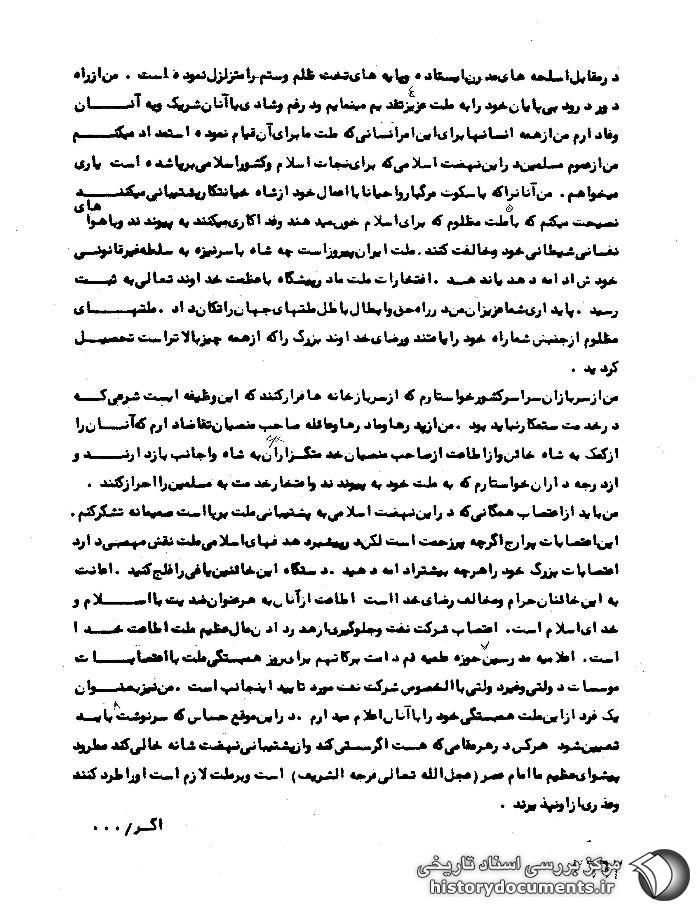 در مقابل اسلحه های مدرن ایستاده و پایه های تخت ظلم و ستم را متزلزل نموده است . من از راه
دور درود بی پایان خود را به ملت عزیز تقدیم مینمایم و در غم و شادی با آنان شریک و به آنان
وفادارم من از همه انسانها برای این امر انسانی که ملت ما برای آن قیام نموده استمداد میکنم
من از عموم مسلمین در این نهضت اسلامی که برای نجات اسلام و کشور اسلامی برپا شده است یاری
میخواهم . من آنانرا که با سکوت مرگبار و احیانا با اعمال خود از شاه خیانتکار پشتیبانی میکنند
نصیحت میکنم که با ملت مظلوم که برای اسلام خون میدهند و فداکاری میکنند به پیوندند و با هواهای
نفسانی شیطانی خود مخالفت کنند . ملت ایران پیروز است چه شاه با سرنیزه به سلطه غیرقانونی
خودش ادامه دهد یا ندهد . افتخارات ملت ما در پیشگاه باعظمت خداوند تعالی به ثبت
رسید . پایداری شما عزیزان من در راه حق و ابطال باطل ملتهای جهان را تکان داد . ملتهای
مظلوم از جنبش شما راه خود را یافتند و رضای خداوند بزرگ را که از همه چیز بالاتر است تحصیل
کردید .
من از سربازان سراسر کشور خواستارم که از سربازخانه ها فرار کنند که این وظیفه ایست شرعی که
در خدمت ستمکار نباید بود . من از پدرها و مادرها و عائله صاحب منصبان تقاضا دارم که آنان را
از کمک به شاه خائن و از اطاعت از صاحب منصبان خدمتگزاران به شاه و اجانب بازدارند و
از درجه داران خواستارم که به ملت خود به پیوندند و افتخار خدمت به مسلمین را احراز کنند .
من باید از اعتصاب همگانی که در این نهضت اسلامی به پشتیبانی ملت برپا است صمیمانه تشکر کنم .
این اعتصابات پر ارج اگرچه پرزحمت است لکن در پیشبرد هدفهای اسلامی ملت نقش مهمی دارد
اعتصابات بزرگ خود را هرچه بیشتر ادامه دهید . دستگاه این خائنین یاغی را فلج کنید . اعانت
به این خائنان حرام و مخالف رضای خدا است اطاعت از آنان به هر عنوان ضدیت با اسلام و
خدای اسلام است . اعتصاب شرکت نفت و جلوگیری از هدر دادن مال عظیم ملت اطاعت خدا
است . اعلامیه مدرسین حوزه علمیه قم دامت برکاتهم برای بروز همبستگی ملت با اعتصابات
موسسات دولتی و غیر دولتی بالخصوص شرکت نفت مورد تایید اینجانب است . من نیز بعنوان
یک فرد از این ملت همبستگی خود را با آنان اعلام میدارم . در این موقع حساس که سرنوشت باید
تعیین شود هر کس در هر مقامی که هست اگر سستی کند و از پشتیبانی نهضت شانه خالی کند مطرود
پیشوای عظیم ما امام عصر (عجل الله تعالی فرجه الشریف) است و بر ملت لازم است او را طرد کنند
و عذری از او نپذیرند .
اگر / ...
مرکز بررسی اسناد تاریخی
historydocuments.ir